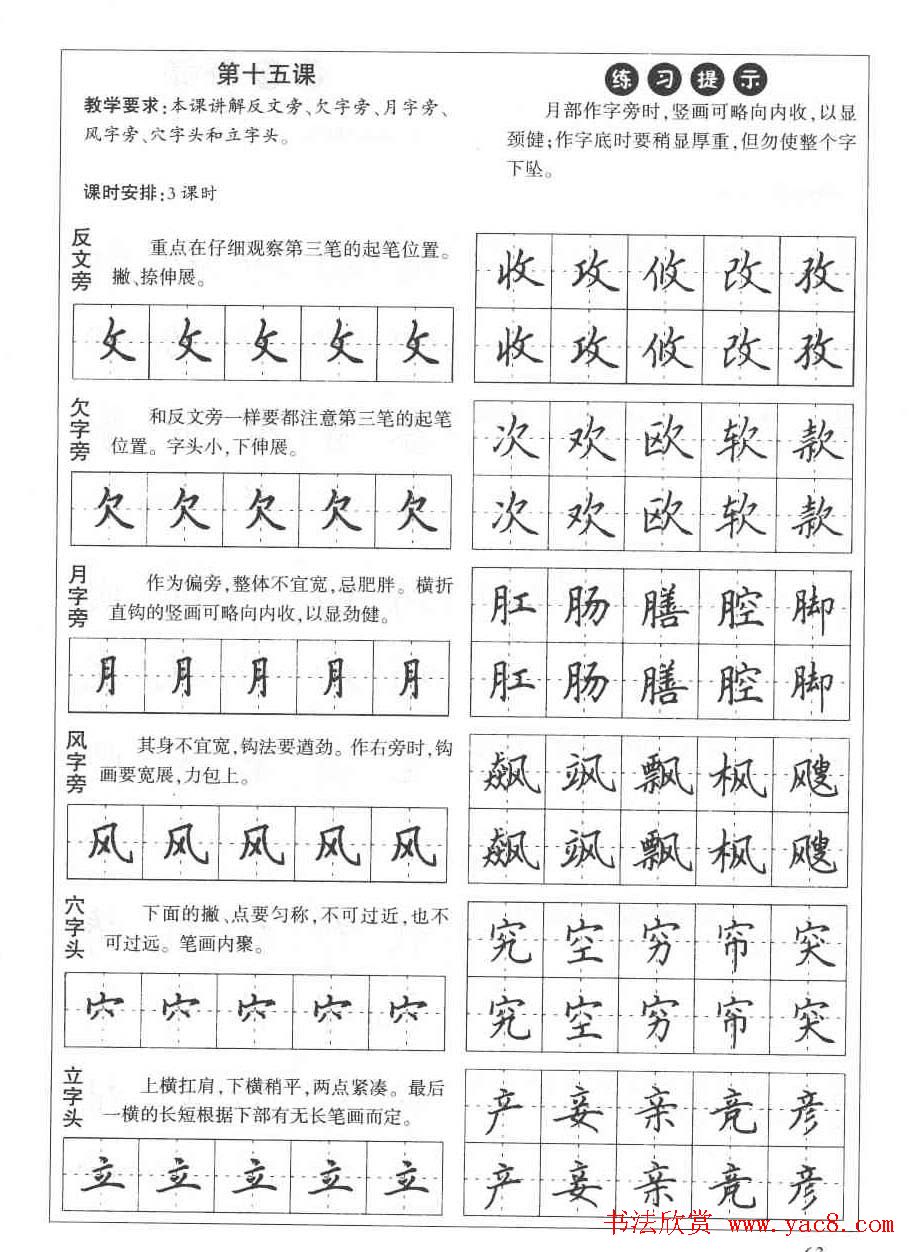 第十五课
教学要求:本课讲解反文旁、欠字旁、月字旁、
风字旁、穴字头和立字头。
课时安排:3课时
练习提示
月部作字旁时,竖画可略向内收,以显
颈健;作字底时要稍显厚重,但勿使整个字
下坠。
反文旁
重点在仔细观察第三笔的起笔位置。
撇、捺伸展。
攵攵攵攵攵
收攻攸改孜
收攻攸改孜
欠字旁
和反文旁一样要都注意第三笔的起笔
位置。字头小,下伸展。
欠欠欠欠欠
次欢欧软款
次欢欧软款
月字旁
作为偏旁,整体不宜宽,忌肥胖。横折
直钩的竖画可略向内收,以显劲健。
月月月月月
肛肠膳腔脚
肛肠膳腔脚
风字旁
其身不宜宽,钩法要遒劲。作右旁时,钩
画要宽展,力包上。
风风风风风
飙飒飘枫飕
飙飒飘枫飕
穴字头
下面的撇、点要匀称,不可过近,也不
可过远。笔画内聚。
穴穴穴穴穴
究空穷帘突
究空穷帘突
立字头
上横扛肩,下横稍平,两点紧凑。最后
一横的长短根据下部有无长笔画而定。
立立立立立
产妾亲竟彦
产妾亲竟彦
书法欣赏 www.yac8.com